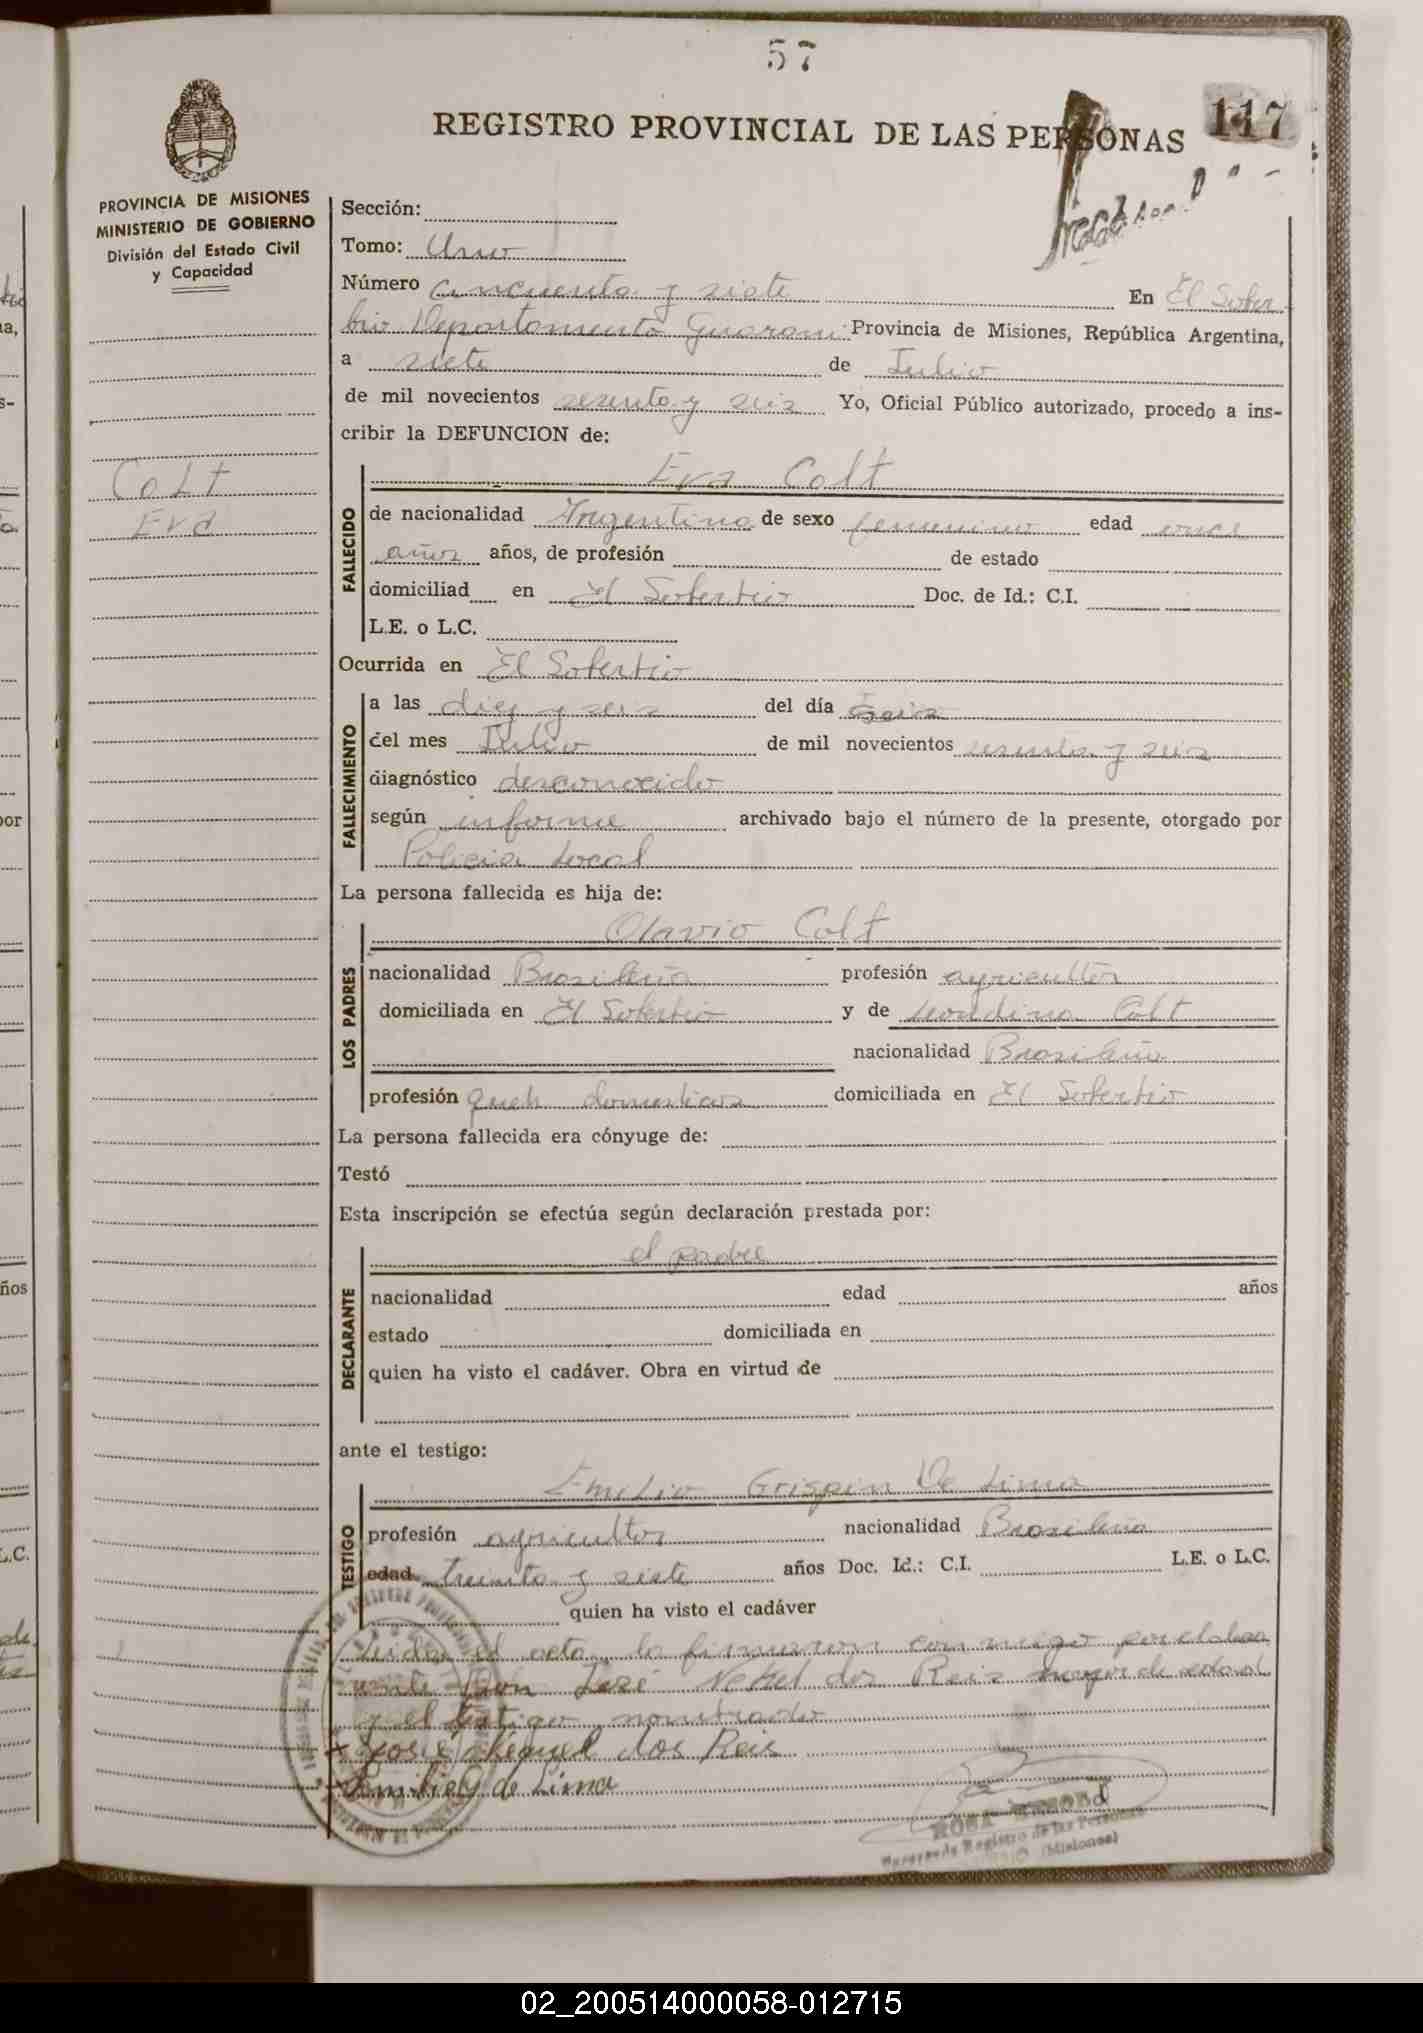 57
117
REGISTRO PROVINCIAL DE LAS PERSONAS
PROVINCIA DE MISIONES
MINISTERIO DE GOBIERNO
División del Estado Civil
y Capacidad
Colt
Eva
Sección:
Tomo: Uno
Número cincuenta y siete En El Sober
bio Departamento Guarani Provincia de Misiones, República Argentina,
a siete de Julio
de mil novecientos sesenta y seis Yo, Oficial Público autorizado, procedo a ins-
cribir la DEFUNCION de:
Eva Colt
FALLECIDO
de nacionalidad Argentina de sexo femenino edad once
años años, de profesión de estado
domiciliad en El Soberbio Doc. de Id.: C.I.
L.E. o L.C.
Ocurrida en El Soberbio
FALLECIMIENTO
a las diez y seis del día seis
del mes Julio de mil novecientos sesenta y seis
diagnóstico desconocido
según informe archivado bajo el número de la presente, otorgado por
Policia Local
La persona fallecida es hija de:
LOS PADRES
Olavio Colt
nacionalidad Brasileña profesión agricultor
domiciliada en El Soberbio y de Leondina Colt
nacionalidad Brasileña
profesión queh domesticos domiciliada en El Soberbio
La persona fallecida era cónyuge de:
Testó
Esta inscripción se efectúa según declaración prestada por:
DECLARANTE
el padre
nacionalidad edad años
estado domiciliada en
quien ha visto el cadáver. Obra en virtud de
ante el testigo:
TESTIGO
Emilio Grispin De Lima
profesión agricultor nacionalidad Brasileña
edad treinta y siete años Doc. Id.: C.I. L.E. o L.C.
quien ha visto el cadáver
Leida el acta la firmaron conmigo por el
Don José dos Reis mayor de edad
y el testigo nombrado
José dos Reis
de Lima
ROSA
Registro de las Personas
(Misiones)
02_200514000058-012715